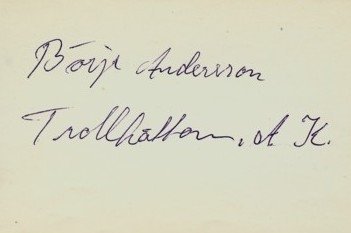 Börje Andersson
Trollhättan, A K.